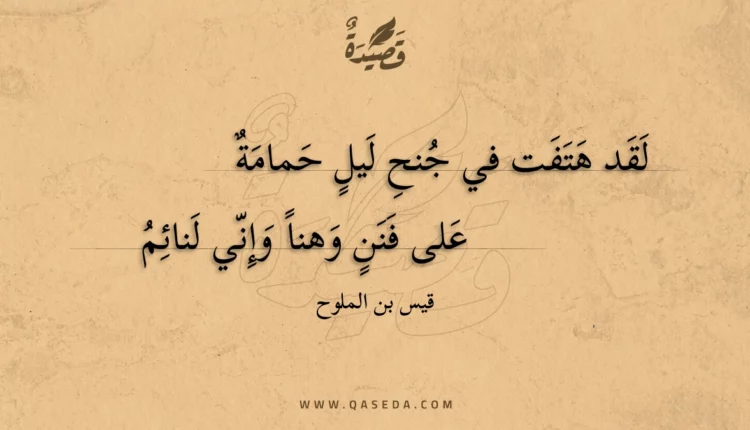 قَصِيْدَةٌ
لَقَد هَتَفَت في جُنحِ لَيلٍ حَمامَةٌ
عَلى فَنَنٍ وَهناً وَإِنّي لَنائِمُ
قيس بن الملوح
WWW.QASEDA.COM